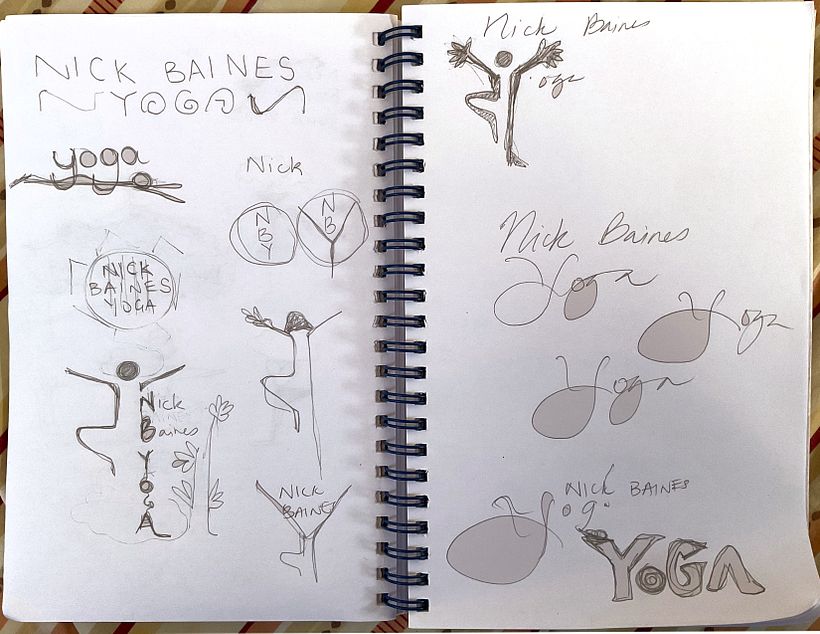 NICK BAINES
YOGA
yoga
yoga
Nick
N
B
Y
N
B
Y
NICK
BAINES
YOGA
Nick
Baines
N
B
Y
O
G
A
NICK
BAINES
Nick Baines
Yoga
Nick Baines
Yoga
Yoga
Yoga
NICK BAINES
Yoga
YOGA